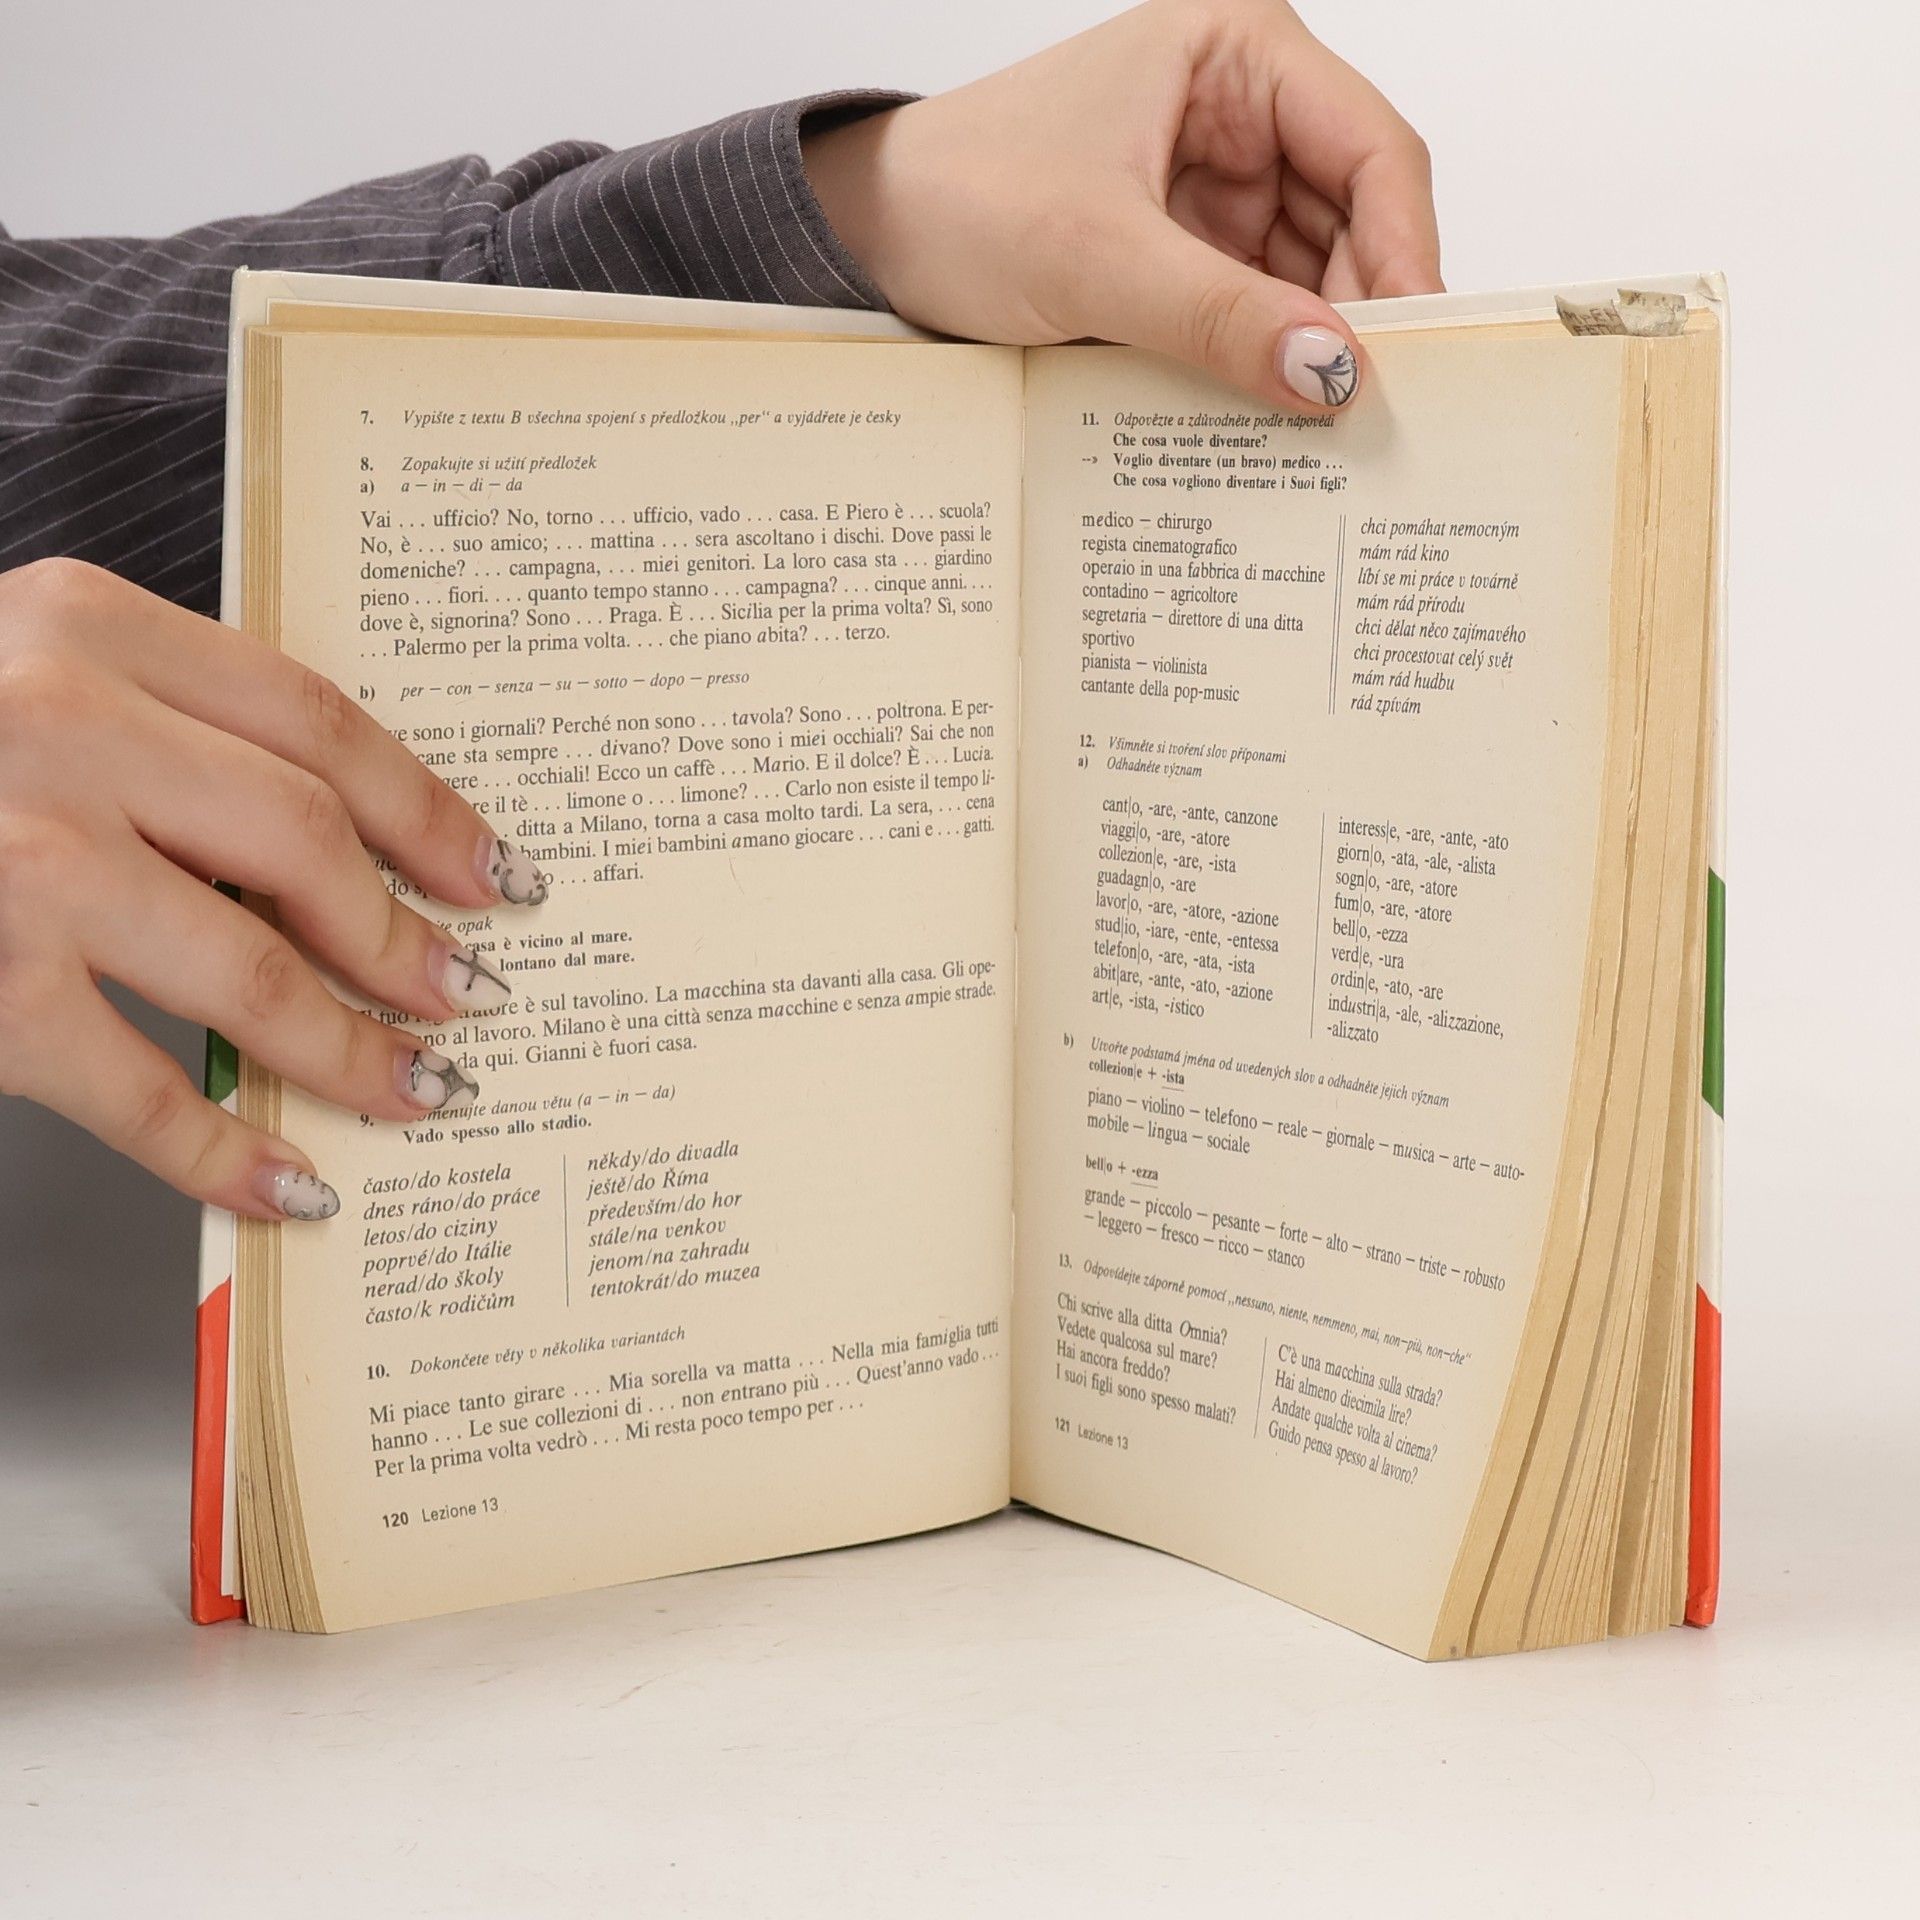 7. Vypište z textu B všechna spojení s předložkou „per“ a vyjádřete je česky
8. Zopakujte si užití předložek
a) a – in – di – da
Vai ... ufficio? No, torno ... ufficio, vado ... casa. E Piero è ... scuola?
No, è ... suo amico; ... mattina ... sera ascoltano i dischi. Dove passi le
domeniche? ... campagna, ... miei genitori. La loro casa sta ... giardino
pieno ... fiori. ... quanto tempo stanno ... campagna? ... cinque anni. ...
dove è, signorina? Sono ... Praga. È ... Sicilia per la prima volta? Sì, sono
... Palermo per la prima volta. ... che piano abita? ... terzo.
b) per – con – senza – su – sotto – dopo – presso
sono i giornali? Perché non sono ... tavola? Sono ... poltrona. E per-
cane sta sempre ... divano? Dove sono i miei occhiali? Sai che non
... occhiali! Ecco un caffè ... Mario. E il dolce? È ... Lucia.
il tè ... limone o ... limone? ... Carlo non esiste il tempo li-
ditta a Milano, torna a casa molto tardi. La sera, ... cena
bambini. I miei bambini amano giocare ... cani e ... gatti.
... affari.
opak
casa è vicino al mare.
lontano dal mare.
è sul tavolino. La macchina sta davanti alla casa. Gli ope-
al lavoro. Milano è una città senza macchine e senza ampie strade.
da qui. Gianni è fuori casa.
9. danou větu (a – in – da)
Vado spesso allo stadio.
často/do kostela
dnes ráno/do práce
letos/do ciziny
poprvé/do Itálie
nerad/do školy
často/k rodičům
někdy/do divadla
ještě/do Říma
především/do hor
stále/na venkov
jenom/na zahradu
tentokrát/do muzea
10. Dokončete věty v několika variantách
Mi piace tanto girare ... Mia sorella va matta ... Nella mia famiglia tutti
hanno ... Le sue collezioni di ... non entrano più ... Quest'anno vado ...
Per la prima volta vedrò ... Mi resta poco tempo per ...
120 Lezione 13
11. Odpovězte a zdůvodněte podle nápovědi
Che cosa vuole diventare?
--» Voglio diventare (un bravo) medico ...
Che cosa vogliono diventare i Suoi figli?
medico – chirurgo
regista cinematografico
operaio in una fabbrica di macchine
contadino – agricoltore
segretaria – direttore di una ditta
sportivo
pianista – violinista
cantante della pop-music
chci pomáhat nemocným
mám rád kino
líbí se mi práce v továrně
mám rád přírodu
chci dělat něco zajímavého
chci procestovat celý svět
mám rád hudbu
rád zpívám
12. Všimněte si tvoření slov příponami
a) Odhadněte význam
cant|o, -are, -ante, canzone
viaggi|o, -are, -atore
collezion|e, -are, -ista
guadagn|o, -are
lavor|o, -are, -atore, -azione
stud|io, -iare, -ente, -entessa
telefon|o, -are, -ata, -ista
abit|are, -ante, -ato, -azione
art|e, -ista, -istico
interess|e, -are, -ante, -ato
giorn|o, -ata, -ale, -alista
sogn|o, -are, -atore
fum|o, -are, -atore
bell|o, -ezza
verd|e, -ura
ordin|e, -ato, -are
industri|a, -ale, -alizzazione,
-alizzato
b) Utvořte podstatná jména od uvedených slov a odhadněte jejich význam
collezion|e + -ista
piano – violino – telefono – reale – giornale – musica – arte – auto-
mobile – lingua – sociale
bell|o + -ezza
grande – piccolo – pesante – forte – alto – strano – triste – robusto
– leggero – fresco – ricco – stanco
13. Odpovídejte záporně pomocí „nessuno, niente, nemmeno, mai, non–più, non–che“
Chi scrive alla ditta Omnia?
Vedete qualcosa sul mare?
Hai ancora freddo?
I suoi figli sono spesso malati?
C'è una macchina sulla strada?
Hai almeno diecimila lire?
Andate qualche volta al cinema?
Guido pensa spesso al lavoro?
121 Lezione 13